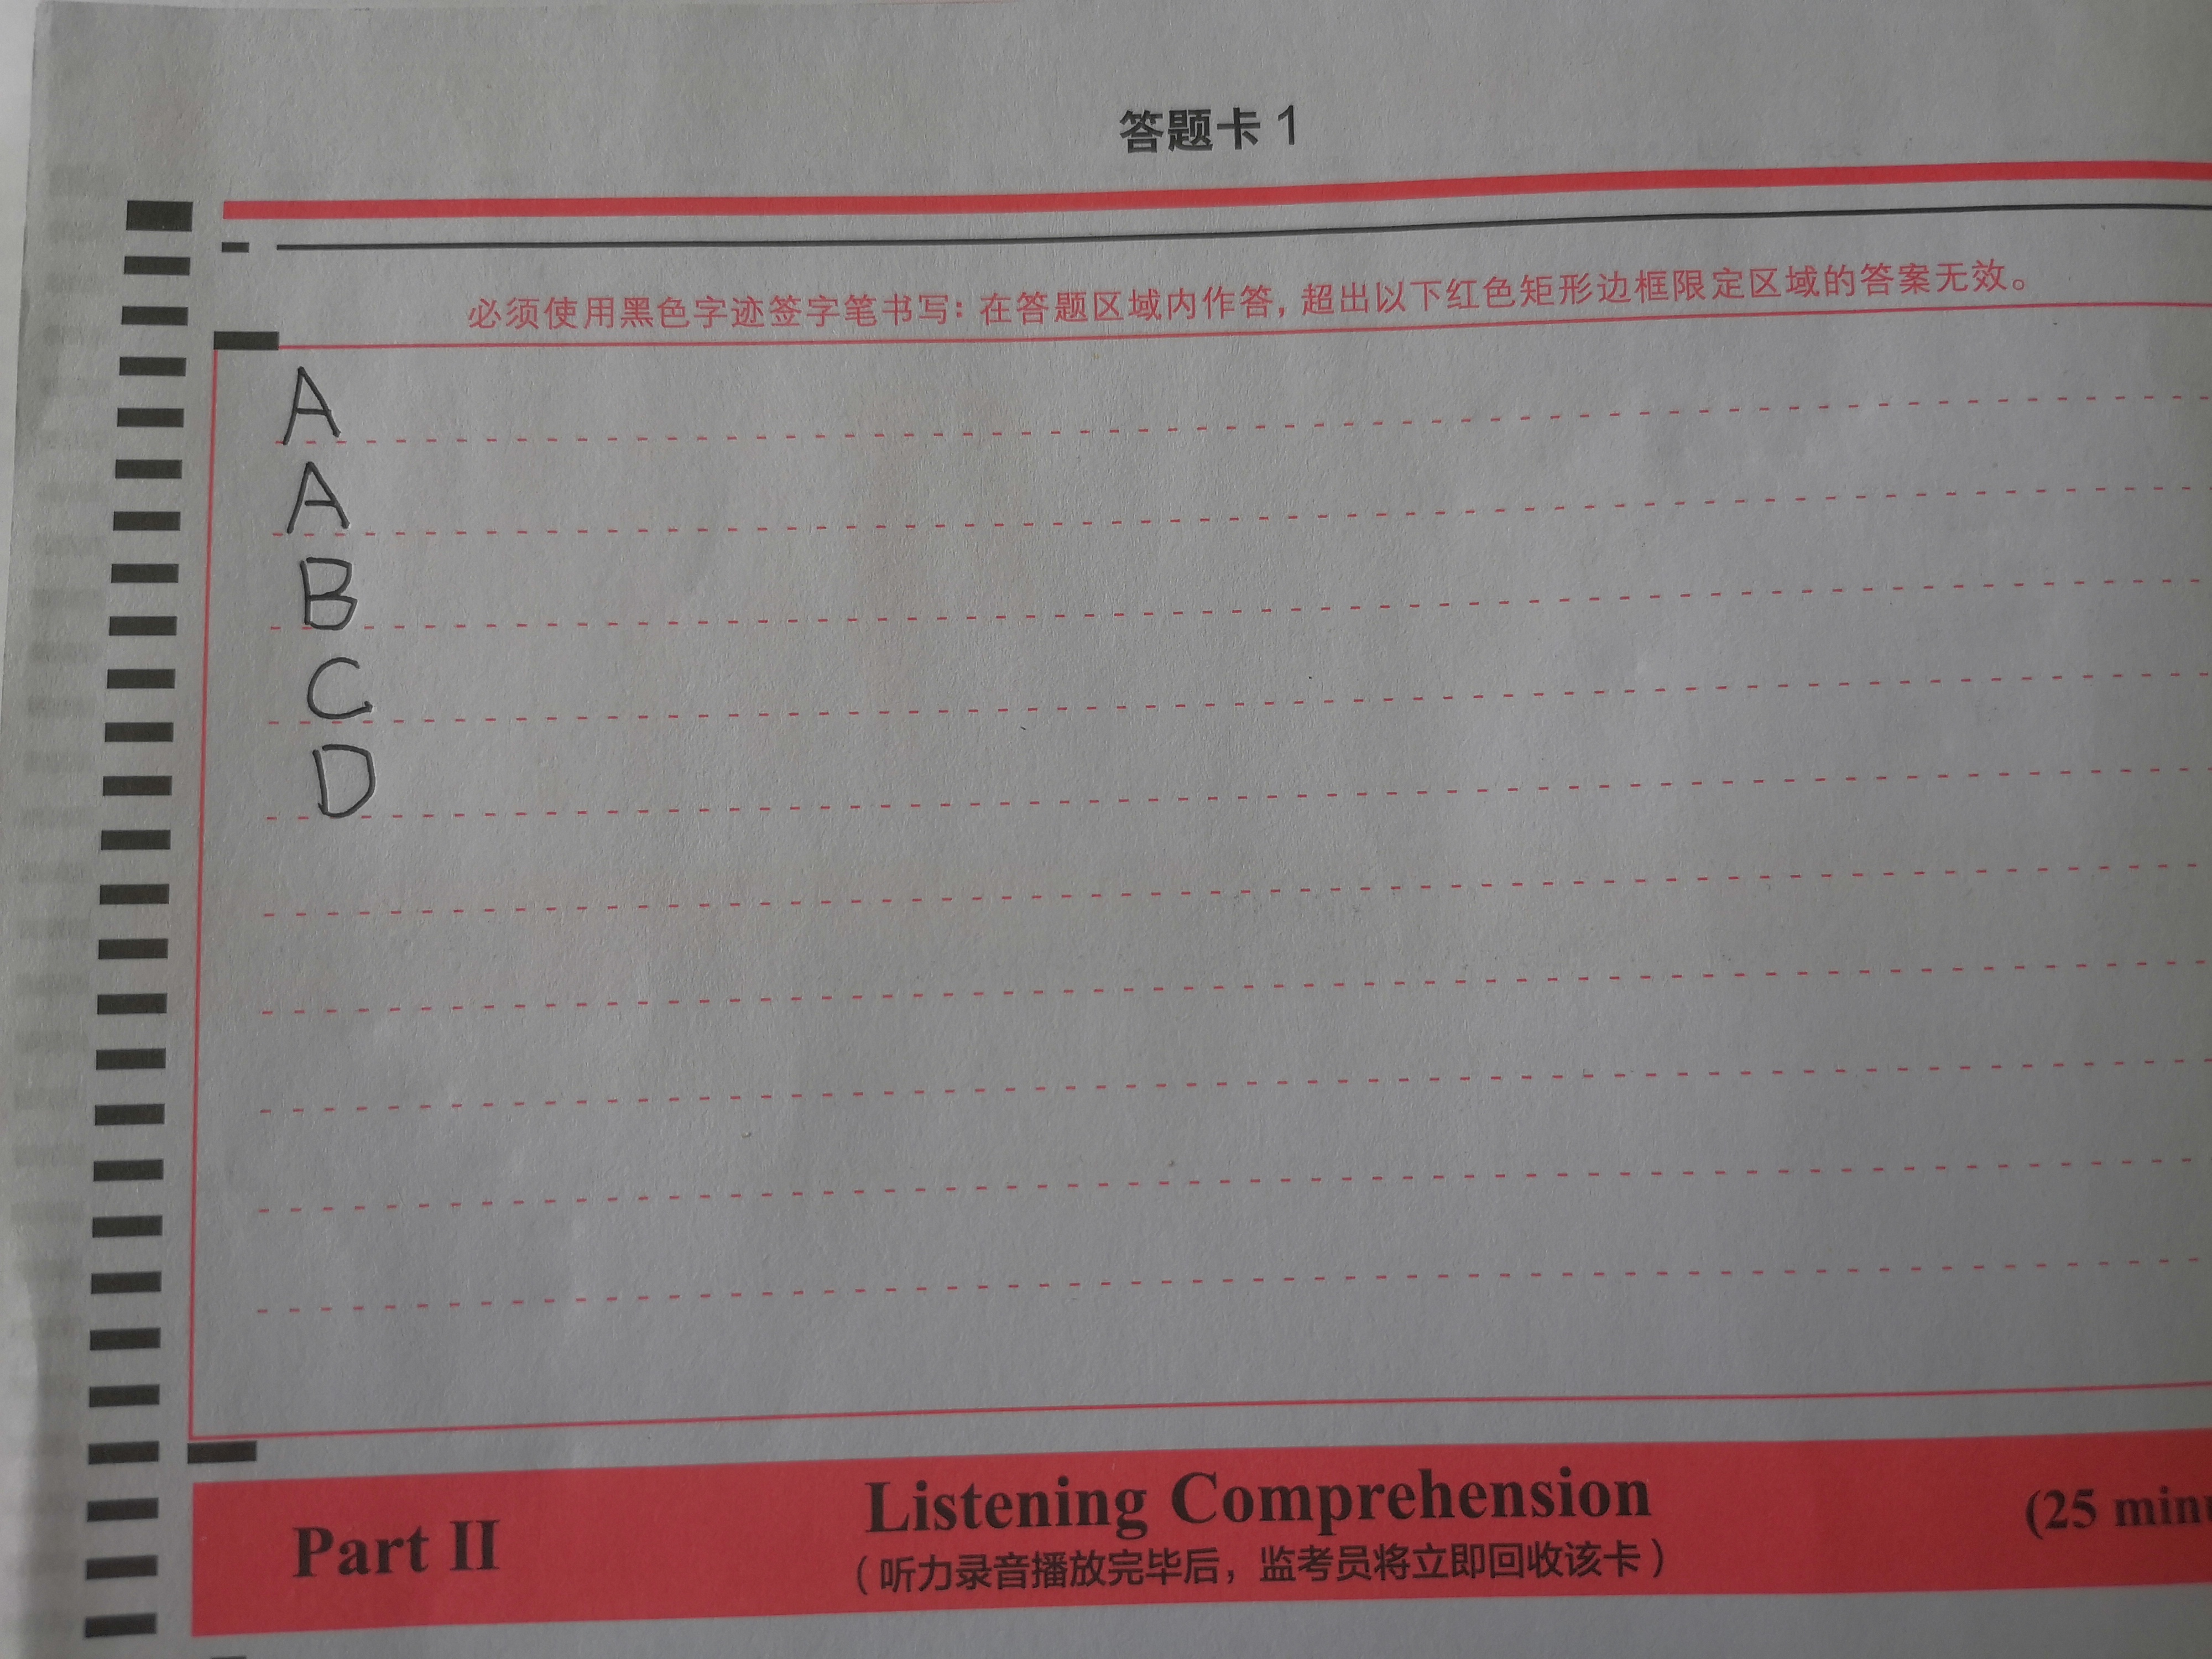 答题卡 1
必须使用黑色字迹签字笔书写: 在答题区域内作答, 超出以下红色矩形边框限定区域的答案无效。
A
A
B
C
D
Part II Listening Comprehension (25
(听力录音播放完毕后, 监考员将立即回收该卡)